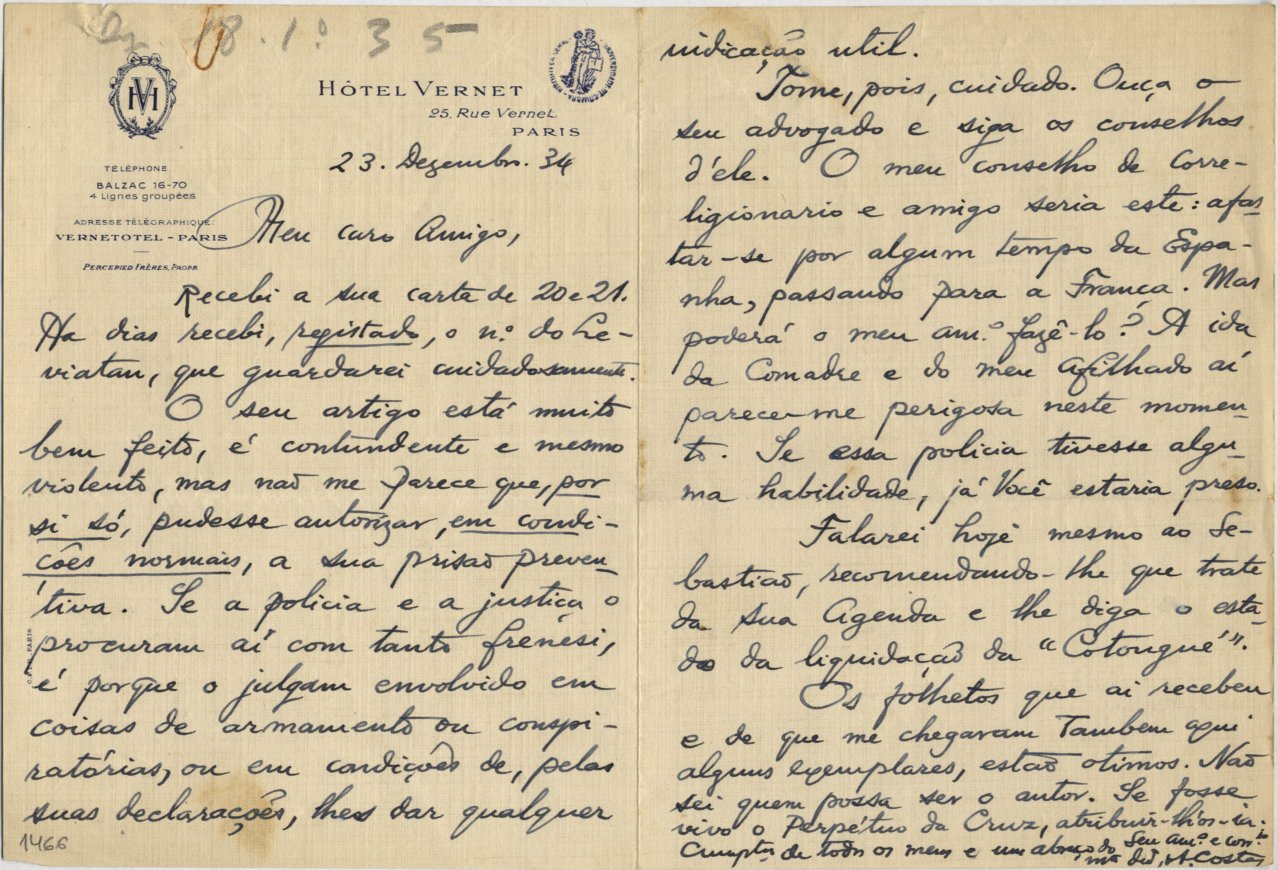 18.1º 35
HVI
HÔTEL VERNET
25, Rue Vernet
PARIS
TÉLÉPHONE
BALZAC 16-70
4 Lignes groupées
ADRESSE TÉLÉGRAPHIQUE:
VERNETOTEL - PARIS
PERCEPIED FRÈRES, PROPR
23. Dezembro. 34
Meu caro Amigo,
Recebi a sua carta de 20 e 21.
Ha dias recebi, registado, o n.º do Le-
viatan, que guardarei cuidadosamente.
O seu artigo está muito
bem feito, é contundente e mesmo
violento, mas não me parece que, por
si só, pudesse autorizar, em condi-
cões normais, a sua prisão preven-
tiva. Se a policia e a justiça o
procuram aí com tanto frenési,
é porque o julgam envolvido em
coisas de armamento ou conspi-
ratórias, ou em condições de, pelas
suas declarações, lhes dar qualquer
1466
indicação util.
Tome, pois, cuidado. Ouça o
seu advogado e siga os conselhos
d'éle. O meu conselho de corre-
ligionario e amigo seria este: afas
tar-se por algum tempo da Espa-
nha, passando para a França. Mas
poderá o meu am.º fazê-lo? A ida
da Comadre e do meu Afilhado aí
parece-me perigosa neste momen-
to. Se essa policia tivesse algu-
ma habilidade, já Você estaria preso.
Falarei hoje mesmo ao Se-
bastião, recomendando-lhe que trate
da sua Agenda e lhe diga o esta-
do da liquidação da "Cotongué".
Os fólhetos que aí recebeu
e de que me chegaram tambem aqui
alguns exemplares, estão otimos. Não
sei quem possa ser o autor. Se fosse
vivo o Perpétuo da Cruz, atribuir-lhos-ia.
Cumptos de todos os meus e um abraço do Seu am.º e
A. Costa